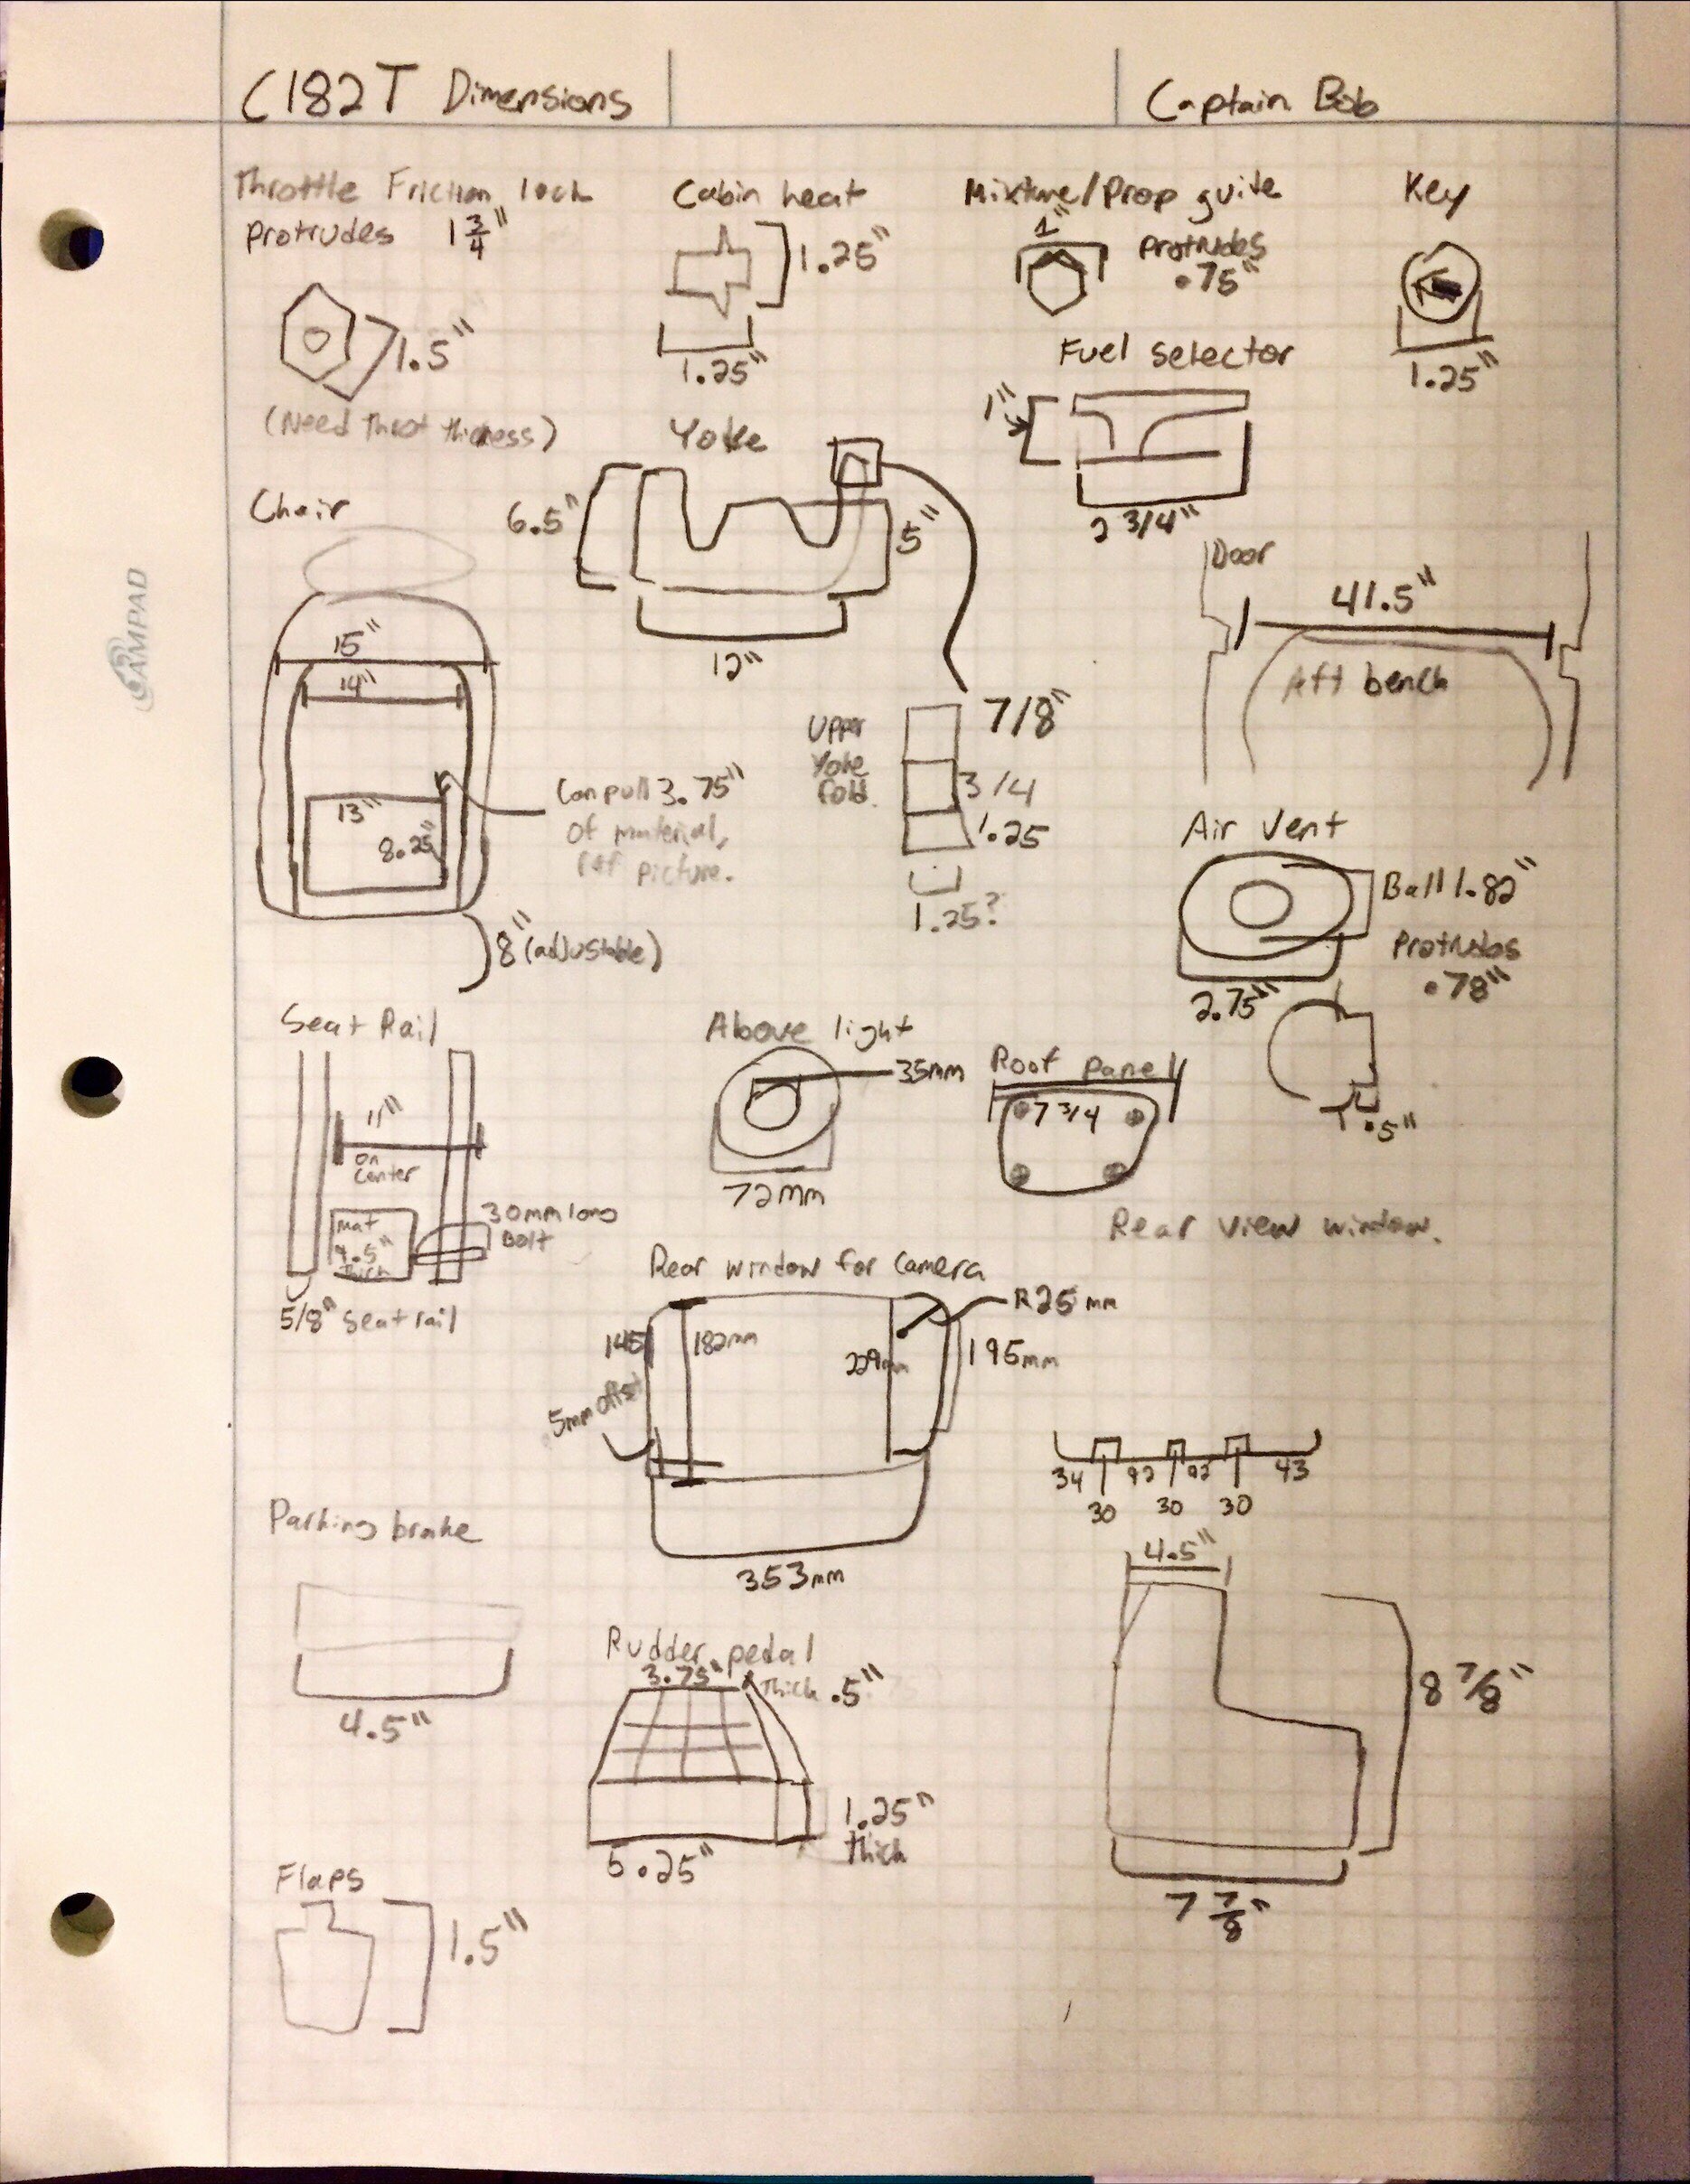 C182T Dimensions
Captain Bob
Throttle Friction lock
Protrudes 1 3/4"
1.5"
(Need Throt thickness)
Cabin heat
1.25"
1.25"
Mixture/Prop guide
1"
Protrudes
.75"
Key
1.25"
Fuel selector
1"
2 3/4"
Yoke
6.5"
5"
12"
Upper
Yoke
fold.
7/8"
3/4
1.25
1.25?
Chair
15"
14"
13"
8.25"
Can pull 3.75"
of material,
ref picture.
8" (adjustable)
Door
41.5"
Aft bench
Air Vent
Ball 1.82"
Protrudes
.78"
2.75"
.5"
Seat Rail
11"
On
Center
mat
thick
30mm long
Bolt
5/8" seat rail
Above light
35mm
72mm
Roof panel
7 3/4
Rear view window.
Rear window for camera
R25mm
145
182mm
229mm
195mm
5mm offset
353mm
34 92 92 43
30 30 30
Parking brake
4.5"
Rudder pedal
3.75"
Thick .5"
1.25"
thick
5.25"
4.5"
8 7/8"
7 7/8"
Flaps
1.5"
AMPAD